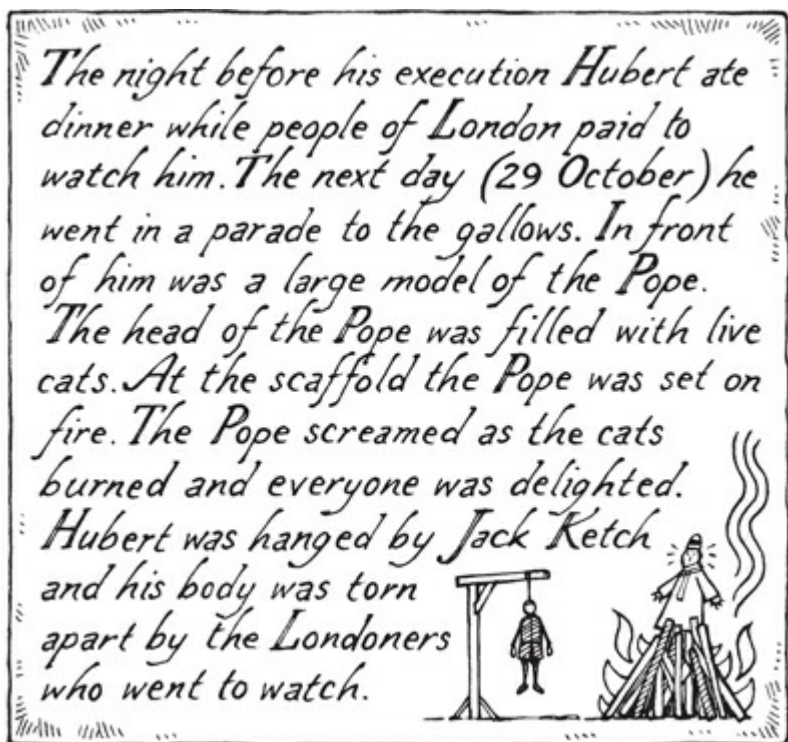 The night before his execution Hubert ate
dinner while people of London paid to
watch him. The next day (29 October) he
went in a parade to the gallows. In front
of him was a large model of the Pope.
The head of the Pope was filled with live
cats. At the scaffold the Pope was set on
fire. The Pope screamed as the cats
burned and everyone was delighted.
Hubert was hanged by Jack Ketch
and his body was torn
apart by the Londoners
who went to watch.